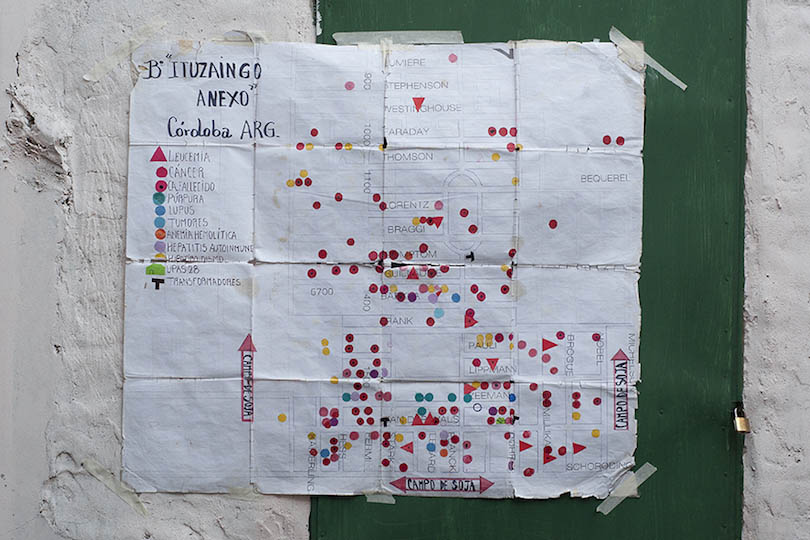 Bº "ITUZAINGO
ANEXO"
Córdoba ARG.
LEUCEMIA
CÁNCER
CA. FALLECIDO
PÚRPURA
LUPUS
TUMORES
ANEMIA HEMOLÍTICA
HEPATITIS AUTOINMUNE
UPAS 28
TRANSFORMADORES
LUMIERE
STEPHENSON
WESTINGHOUSE
FARADAY
THOMSON
BEQUEREL
LORENTZ
BRAGGI
900
1000
1100
6700
FRANK
PAULI
LIPPMANN
ZEEMAN
BROGLIE
NOBEL
SCHORODING
KAMERLING
CAMPO DE SOJA
CAMPO DE SOJA
CAMPO DE SOJA